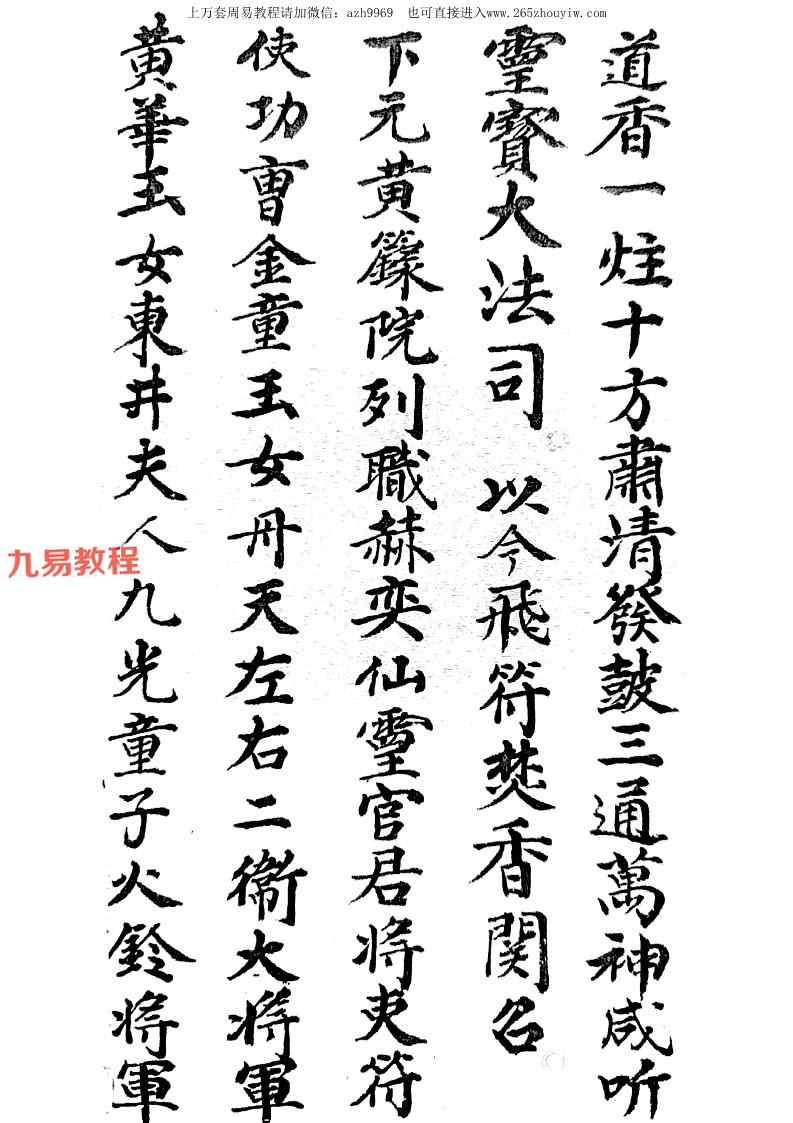 上万套周易教程请加微信：azh9969　也可直接进入www.265zhouyiw.com
道香一炷十方肅清發鼓三通萬神咸听
靈寶大法司　以今飛符焚香関召
下元黄籙院列職赫奕仙靈官君将吏符
使功曹金童玉女丹天左右二衛大将軍
黄華玉女東井夫人九光童子火鈴将軍
九易教程